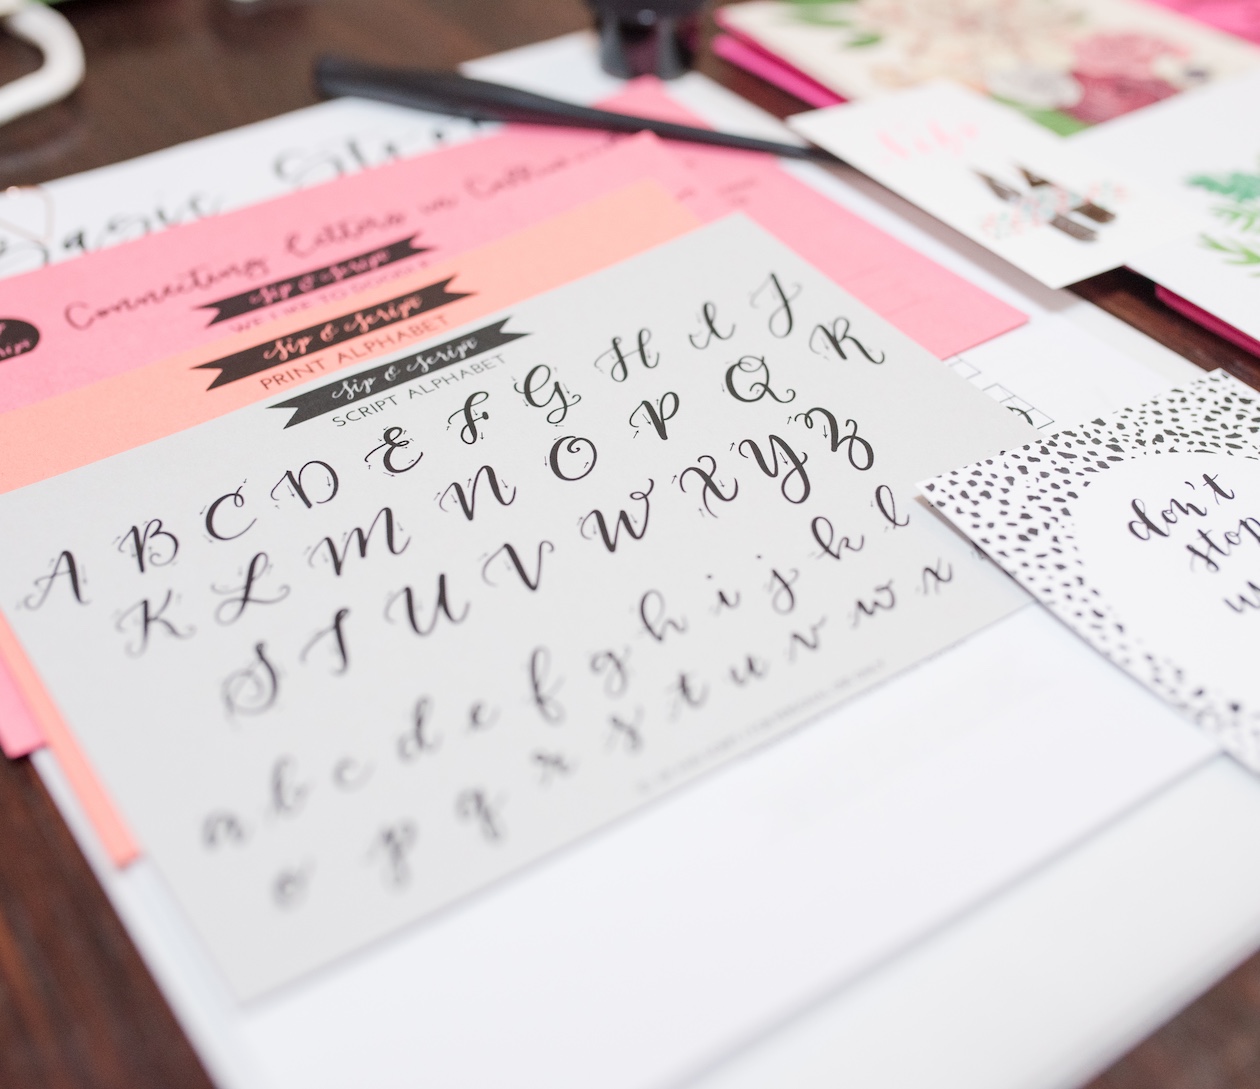 Basic
Connecting Letters in
Sip & Script
Sip & Script
PRINT ALPHABET
Sip & Script
SCRIPT ALPHABET
A B C D E F G H I J
K L M N O P Q R
S T U V W X Y Z
a b c d e f g h i j k l
o p q r s t u v w x
don't
stop